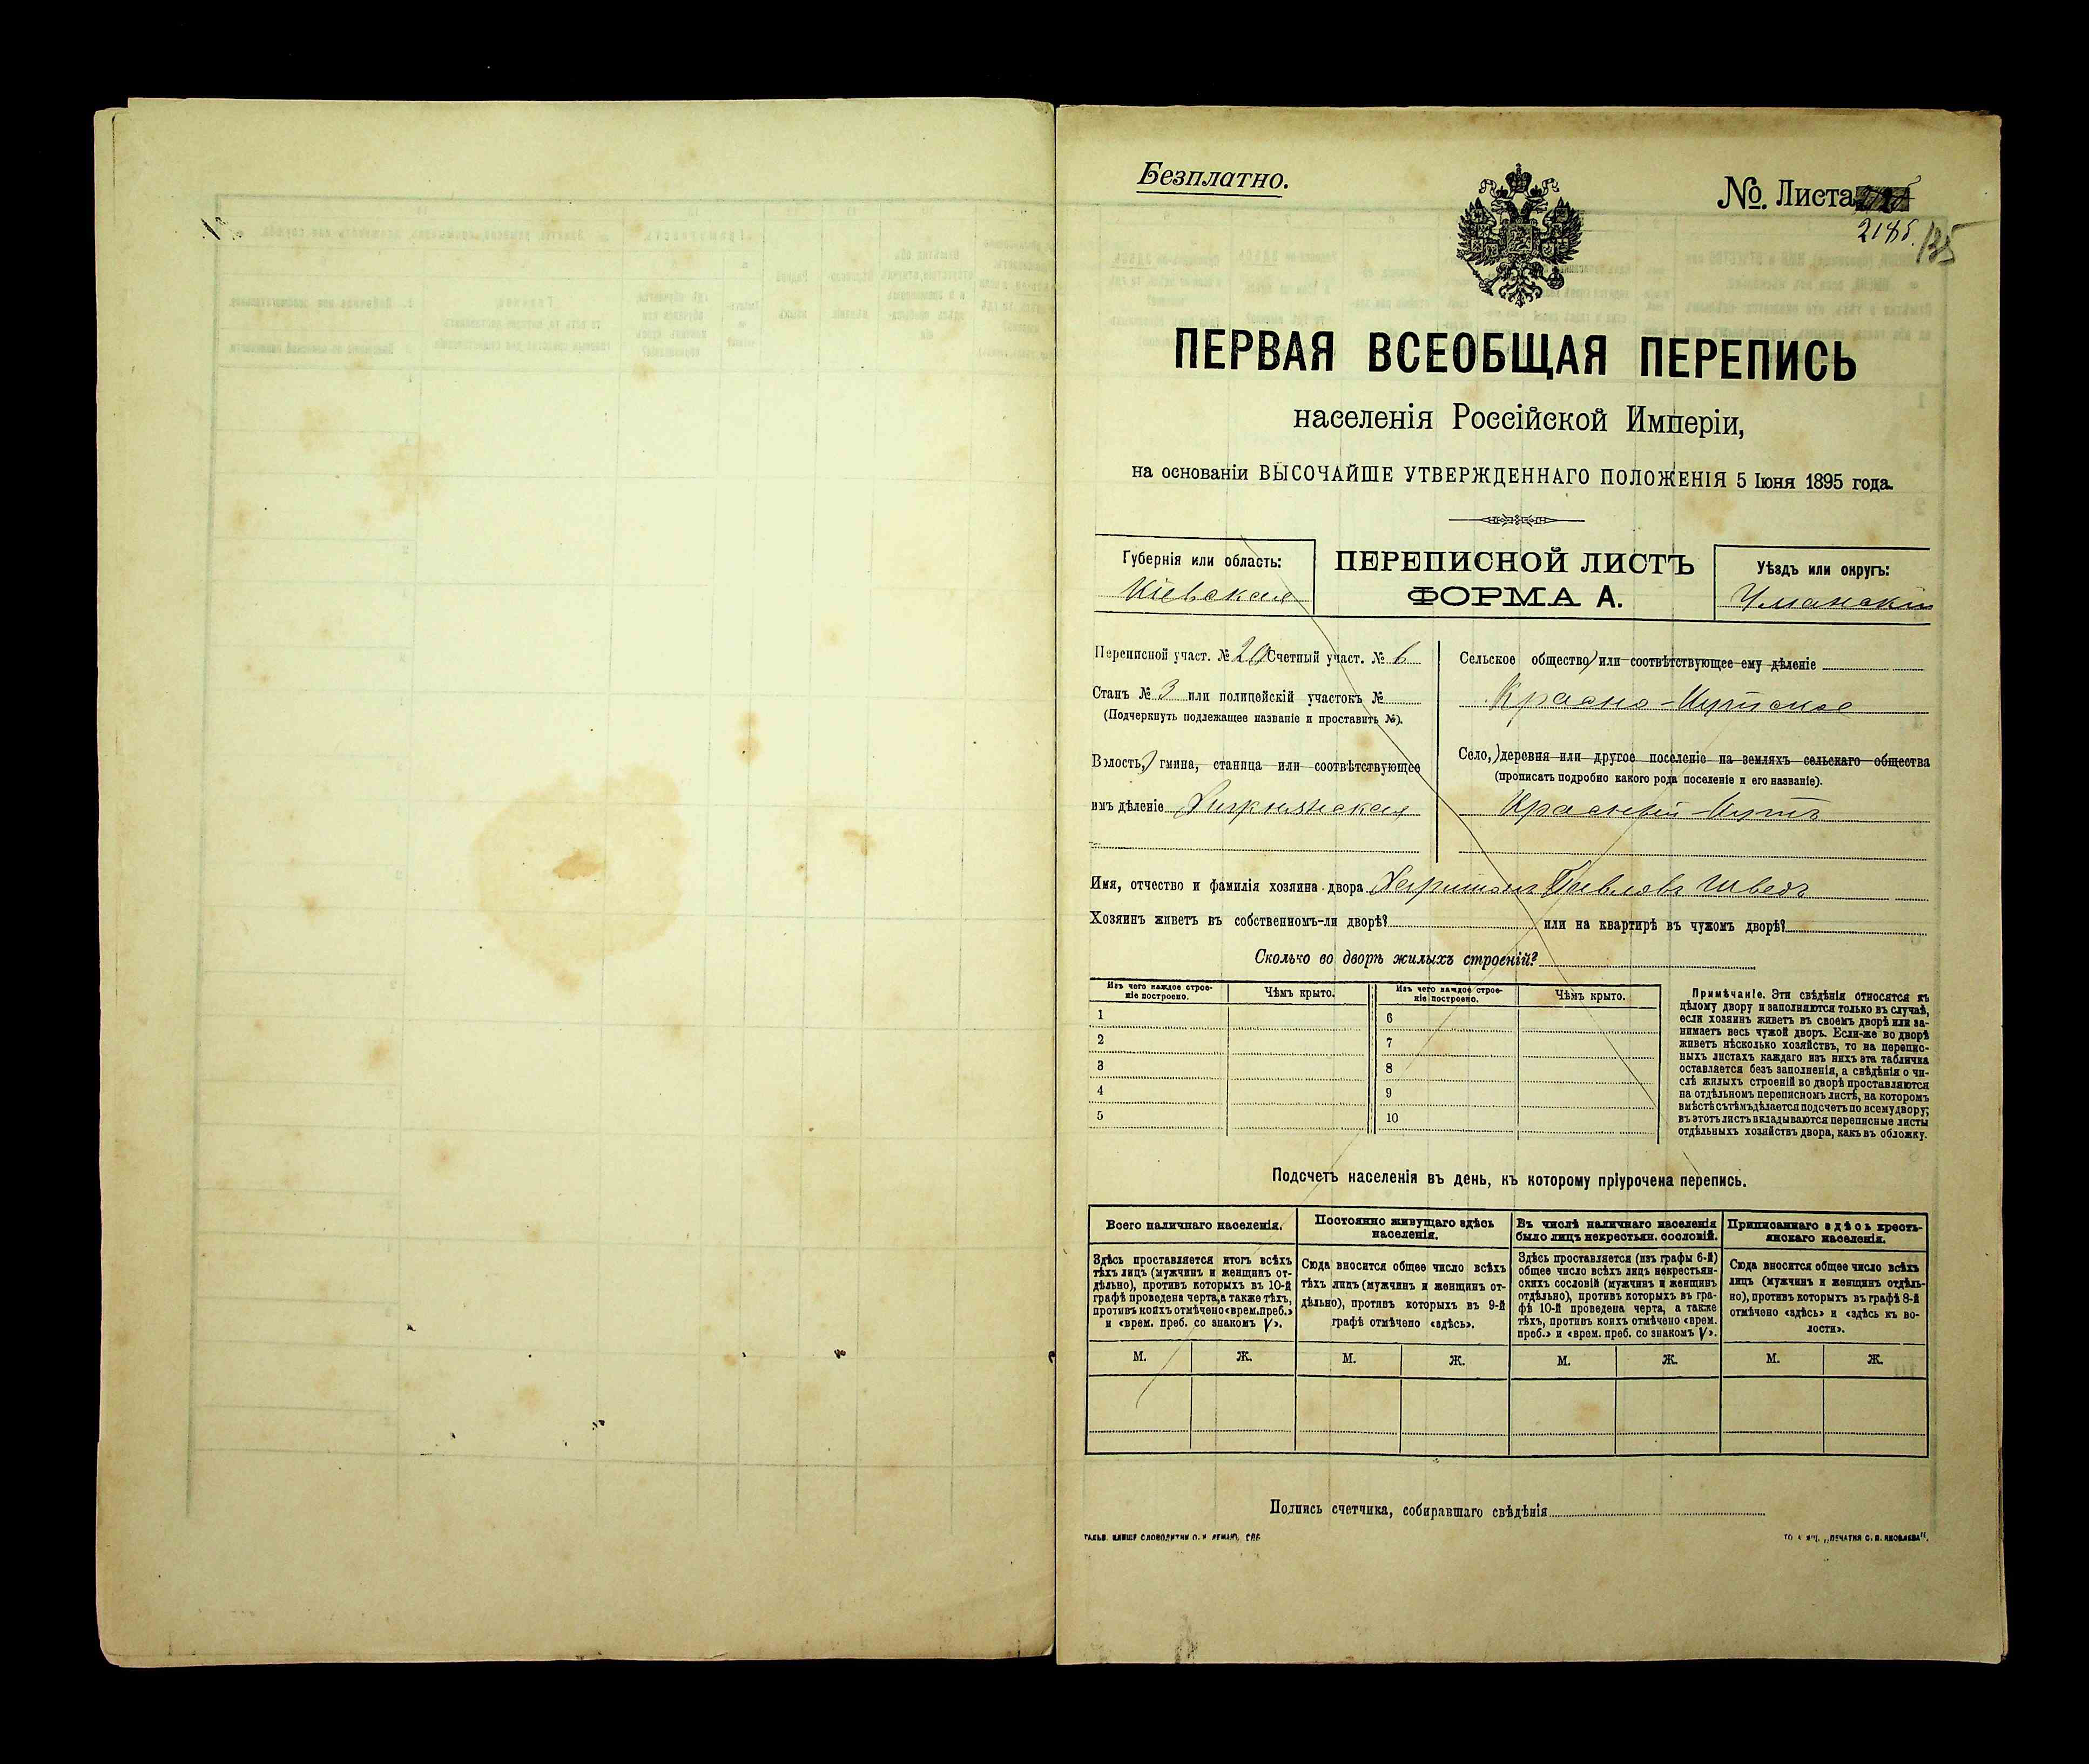 Безплатно.
№. Листа
218б. 135
ПЕРВАЯ ВСЕОБЩАЯ ПЕРЕПИСЬ
населенія Россійской Имперіи,
на основаніи ВЫСОЧАЙШЕ УТВЕРЖДЕННАГО ПОЛОЖЕНІЯ 5 Іюня 1895 года.
Губернія или область:
Кіевская
ПЕРЕПИСНОЙ ЛИСТЪ
ФОРМА А.
Уѣздъ или округъ:
Уманскій
Переписной участ. № 20 Счетный участ. № 6
Станъ № 3 или полицейскій участокъ №
(Подчеркнуть подлежащее названіе и проставить №).
Волость, гмина, станица или соотвѣтствующее
имъ дѣленіе
Сельское общество или соотвѣтствующее ему дѣленіе
Красно-Кутское
Село, деревня или другое поселеніе на земляхъ сельскаго общества
(прописать подробно какого рода поселеніе и его названіе).
Красный Кутъ
Имя, отчество и фамилія хозяина двора Харитонъ Павловъ Шведъ
Хозяинъ живетъ въ собственномъ-ли дворѣ? или на квартирѣ въ чужомъ дворѣ?
Сколько во дворѣ жилыхъ строеній?
Изъ чего каждое строе-
ніе построено.
Чѣмъ крыто.
1
2
3
4
5
Изъ чего каждое строе-
ніе построено.
Чѣмъ крыто.
6
7
8
9
10
Примѣчаніе. Эти свѣдѣнія относятся къ
цѣлому двору и заполняются только въ случаѣ,
если хозяинъ живетъ въ своемъ дворѣ или за-
нимаетъ весь чужой дворъ. Если-же во дворѣ
живетъ нѣсколько хозяйствъ, то на перепис-
ныхъ листахъ каждаго изъ нихъ эта табличка
оставляется безъ заполненія, а свѣдѣнія о чи-
слѣ жилыхъ строеній во дворѣ проставляются
на отдѣльномъ переписномъ листѣ, на которомъ
вмѣстѣ съ тѣмъ дѣлается подсчетъ по всему двору;
въ этотъ листъ вкладываются переписные листы
отдѣльныхъ хозяйствъ двора, какъ въ обложку.
Подсчетъ населенія въ день, къ которому пріурочена перепись.
Всего наличнаго населенія.
Здѣсь проставляется итогъ всѣхъ
тѣхъ лицъ (мужчинъ и женщинъ от-
дѣльно), противъ которыхъ въ 10-й
графѣ проведена черта, а также тѣхъ,
противъ коихъ отмѣчено «врем. преб.»
и «врем. преб. со знакомъ V».
М. Ж.
Постоянно живущаго здѣсь
населенія.
Сюда вносится общее число всѣхъ
тѣхъ лицъ (мужчинъ и женщинъ от-
дѣльно), противъ которыхъ въ 9-й
графѣ отмѣчено «здѣсь».
М. Ж.
Въ числѣ наличнаго населенія
было лицъ некрестьян. сословій.
Здѣсь проставляется (изъ графы 6-й)
общее число всѣхъ лицъ некрестьян-
скихъ сословій (мужчинъ и женщинъ
отдѣльно), противъ которыхъ въ гра-
фѣ 10-й проведена черта, а также
тѣхъ, противъ коихъ отмѣчено «врем.
преб.» и «врем. преб. со знакомъ V».
М. Ж.
Приписаннаго здѣсь кресть-
янскаго населенія.
Сюда вносится общее число всѣхъ
лицъ (мужчинъ и женщинъ отдѣль-
но), противъ которыхъ въ графѣ 8-й
отмѣчено «здѣсь» и «здѣсь къ во-
лости».
М. Ж.
Подпись счетчика, собиравшаго свѣдѣнія